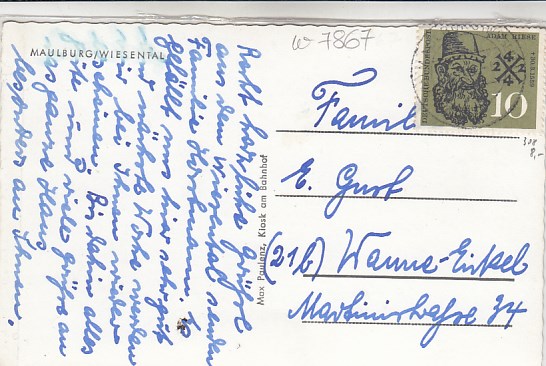 MAULBURG/WIESENTAL
Recht herzliche Grüße
aus dem Wiesental senden
Familie Horstmann. Es
gefällt uns hier sehr gut
nächste Woche werden
wir bei Ihnen wieder
Bis dahin alles
Gute und viele Grüße an
das ganze Haus
besonders an Ihnen.
Max Paulenz, Kiosk am Bahnhof
w 7867
DEUTSCHE BUNDESPOST
ADAM RIESE
10
308
8,-
Famil
E. Gust
(21b) Wanne-Eickel
Martinistraße 34